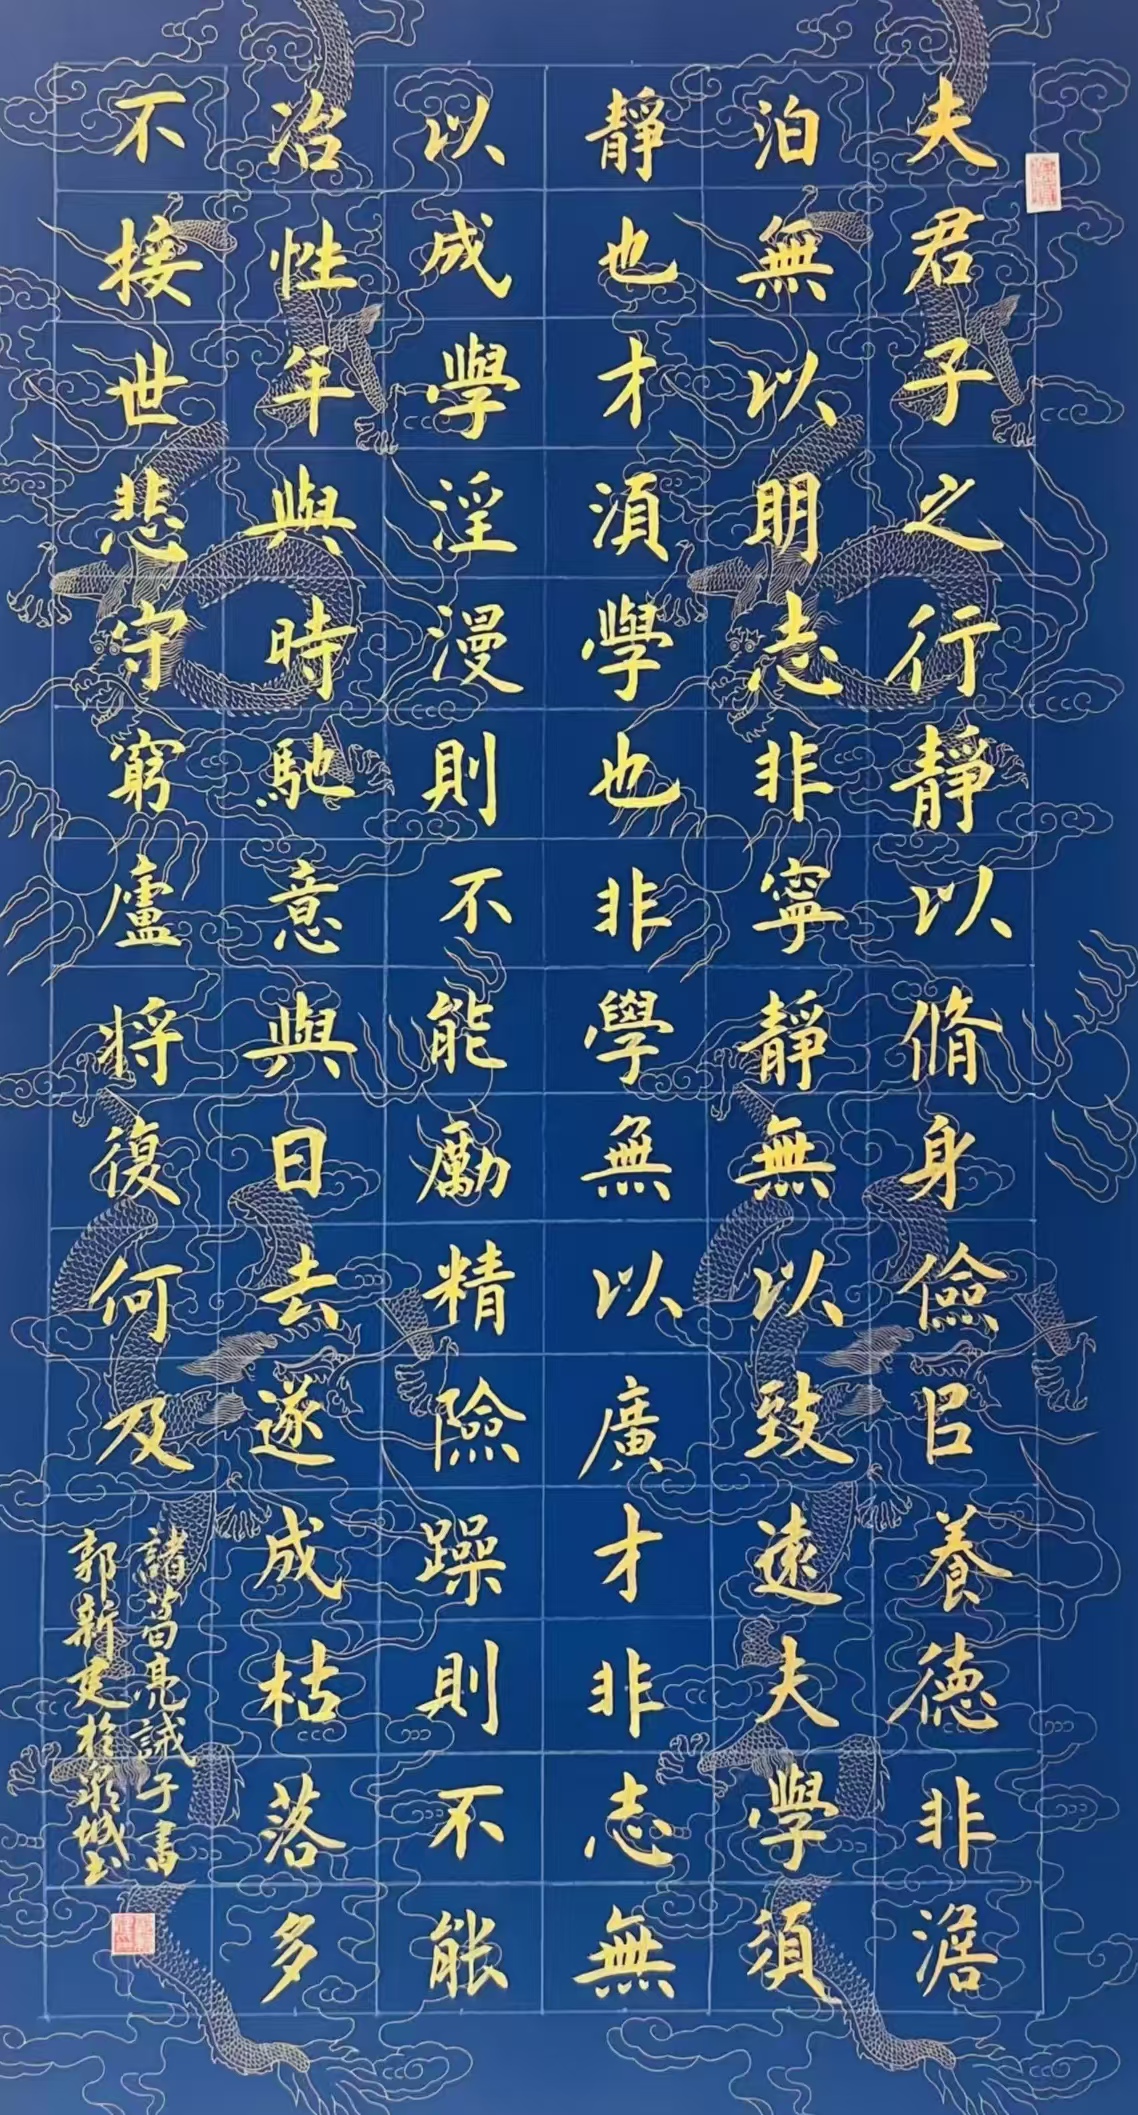 夫君子之行靜以脩身儉㠯養德非澹
泊無以明志非寧靜無以致遠夫學須
靜也才須學也非學無以廣才非志無
以成學淫漫則不能勵精險躁則不能
冶性年與時馳意與日去遂成枯落多
不接世悲守窮廬將復何及
諸葛亮誡子書
郭新建於泉城